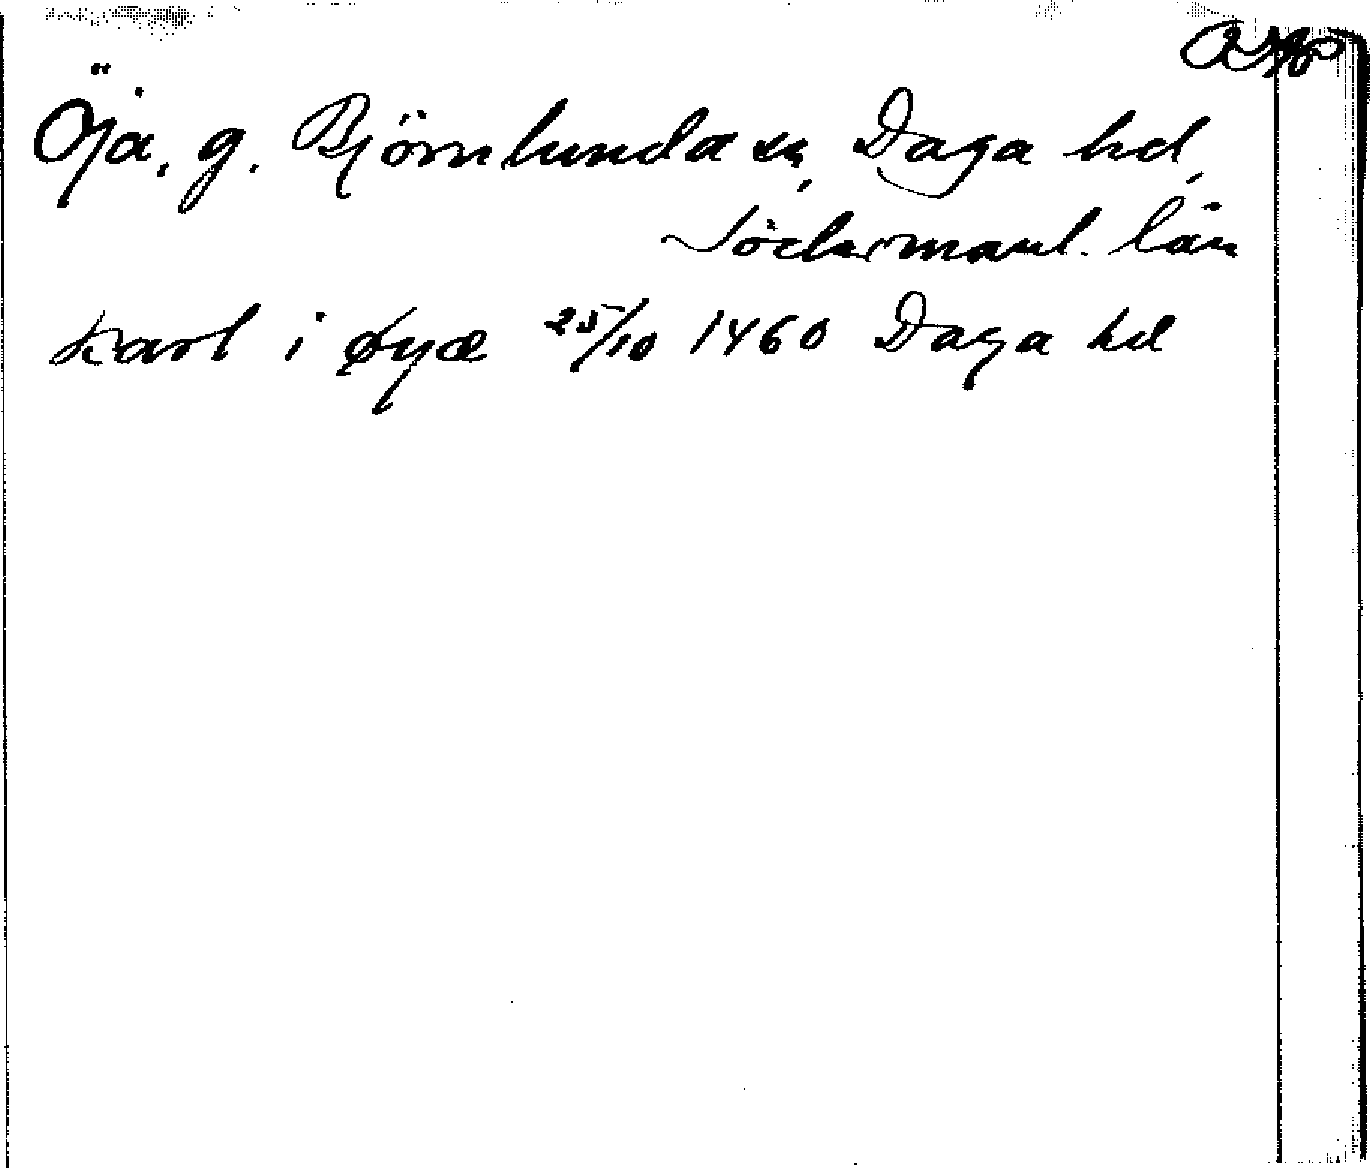 Öja, g. Björnlunda sn, Daga hd,
Södermanl. län
Karl i Øyæ 25/10 1460 Daga hd